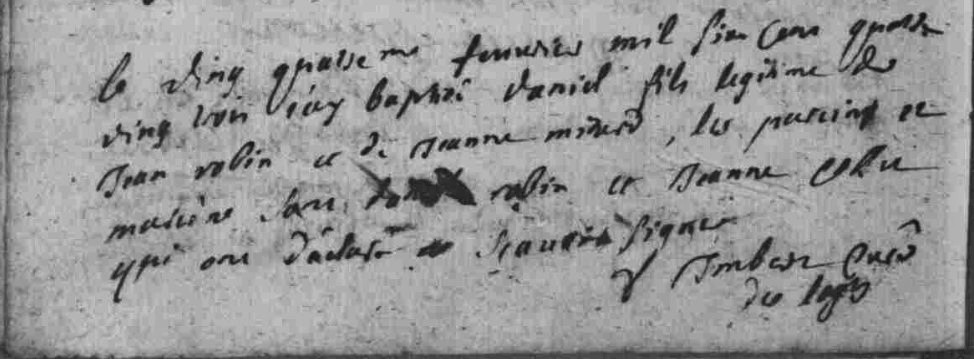 le ving quatre me feuurier mil six cens quatre
ving trois iay baptisé daniel fils legitime de
Jean robin et de Jeanne minard, les parein et
mareine sont daniel robin et Jeanne
qui ont déclaré ne scauoir signer
Imbert Curé
de